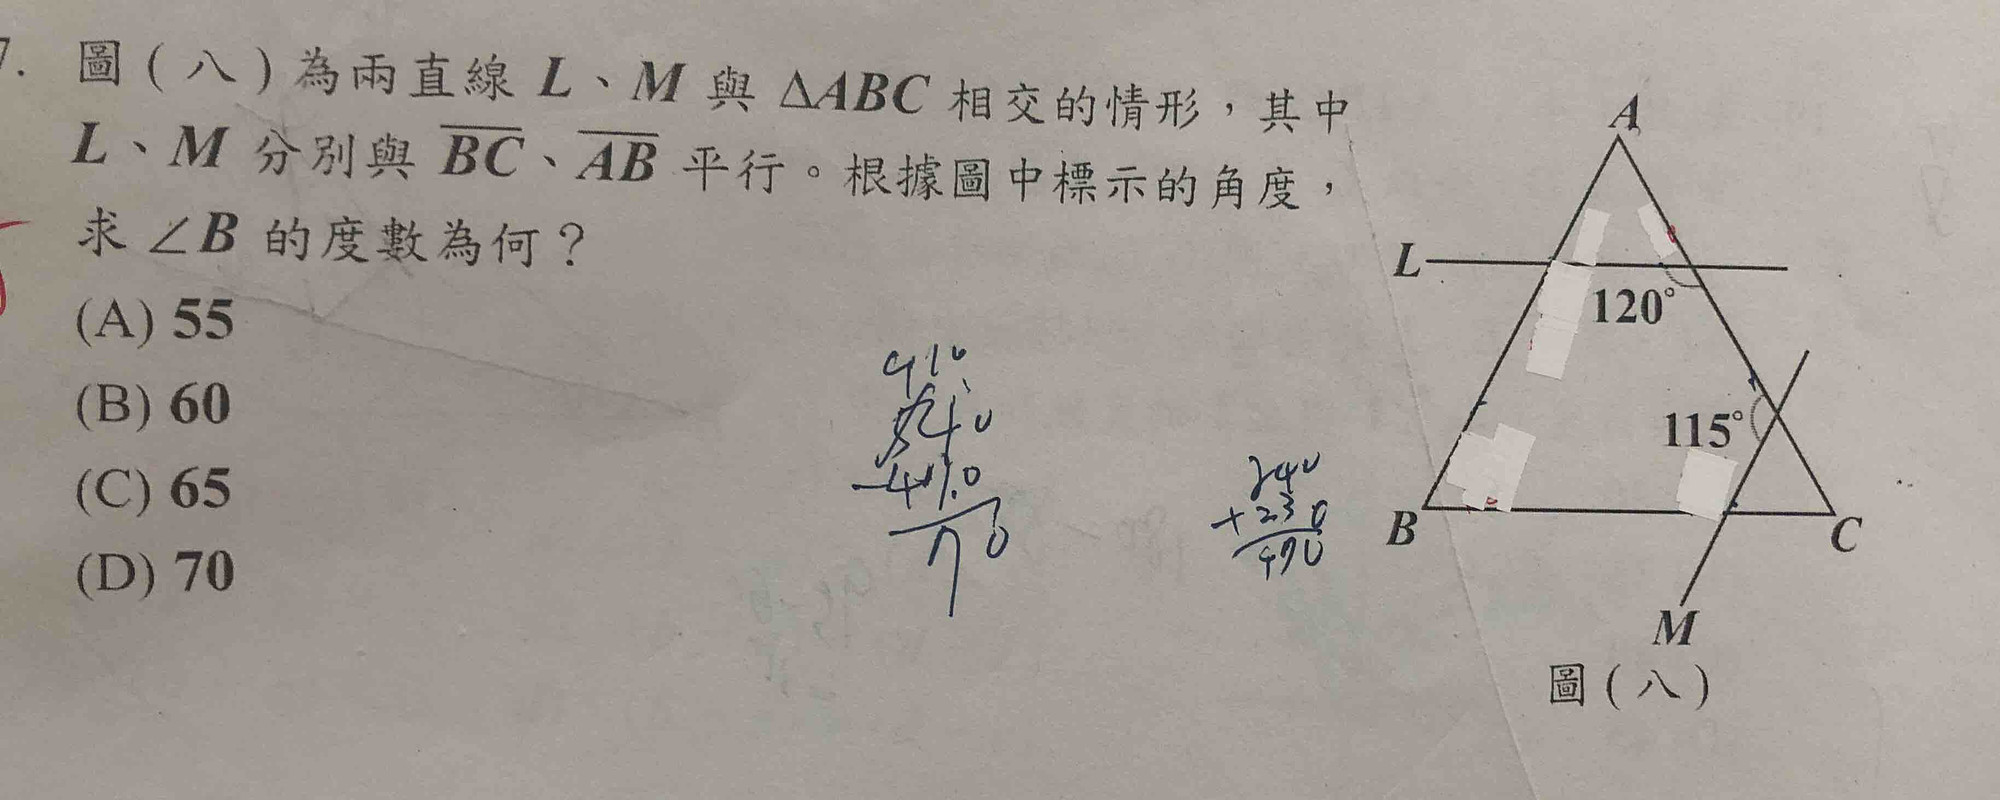 7. 圖(八)為兩直線 L、M 與 ΔABC 相交的情形，其中
L、M 分別與 BC、AB 平行。根據圖中標示的角度，
求 ∠B 的度數為何？
(A) 55
(B) 60
(C) 65
(D) 70
A
L
120°
115°
B
C
M
圖(八)
240
+230
470